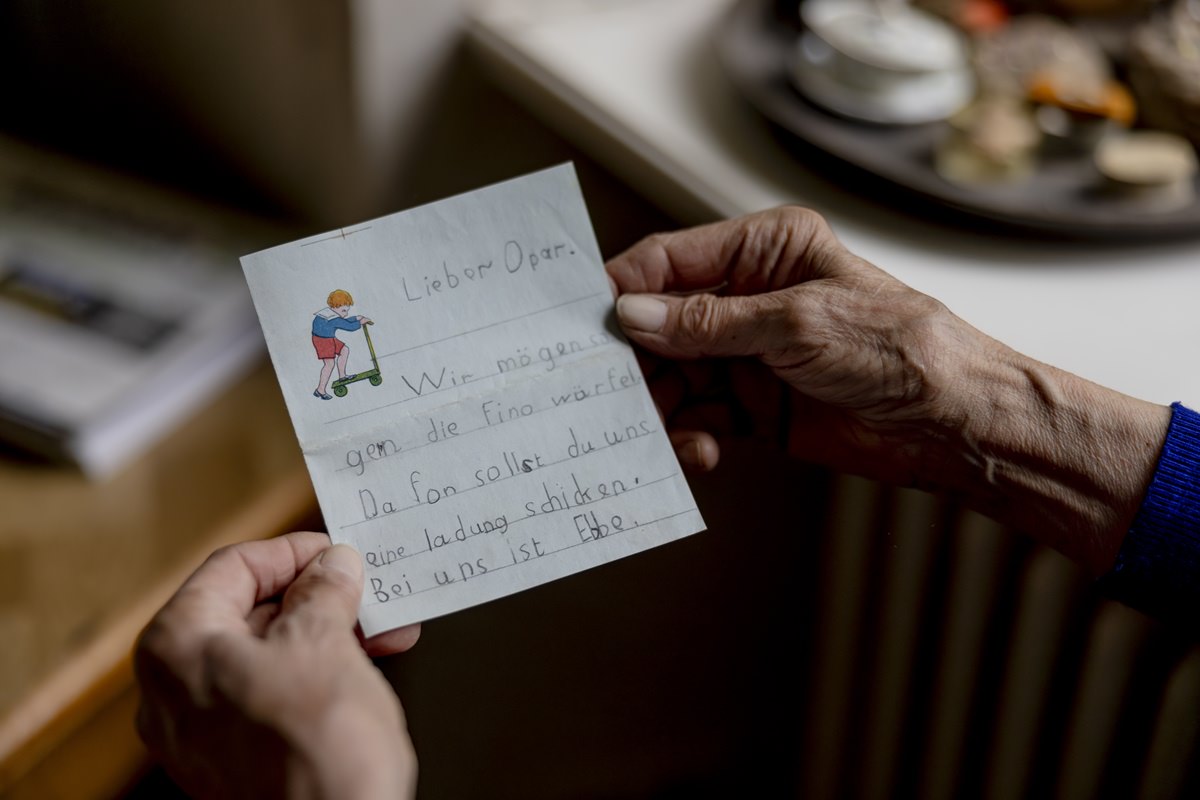 Lieber Opar.
Wir mögen so
gern die Fino würfel.
Da fon sollst du uns
eine ladung schicken.
Bei uns ist Ebbe.